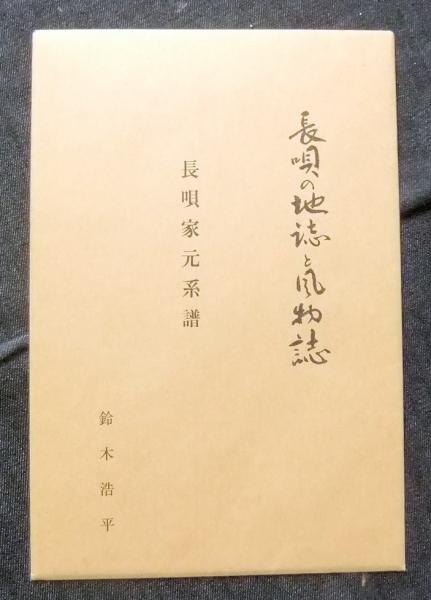 長唄の地誌と風物誌
長唄家元系譜
鈴木浩平